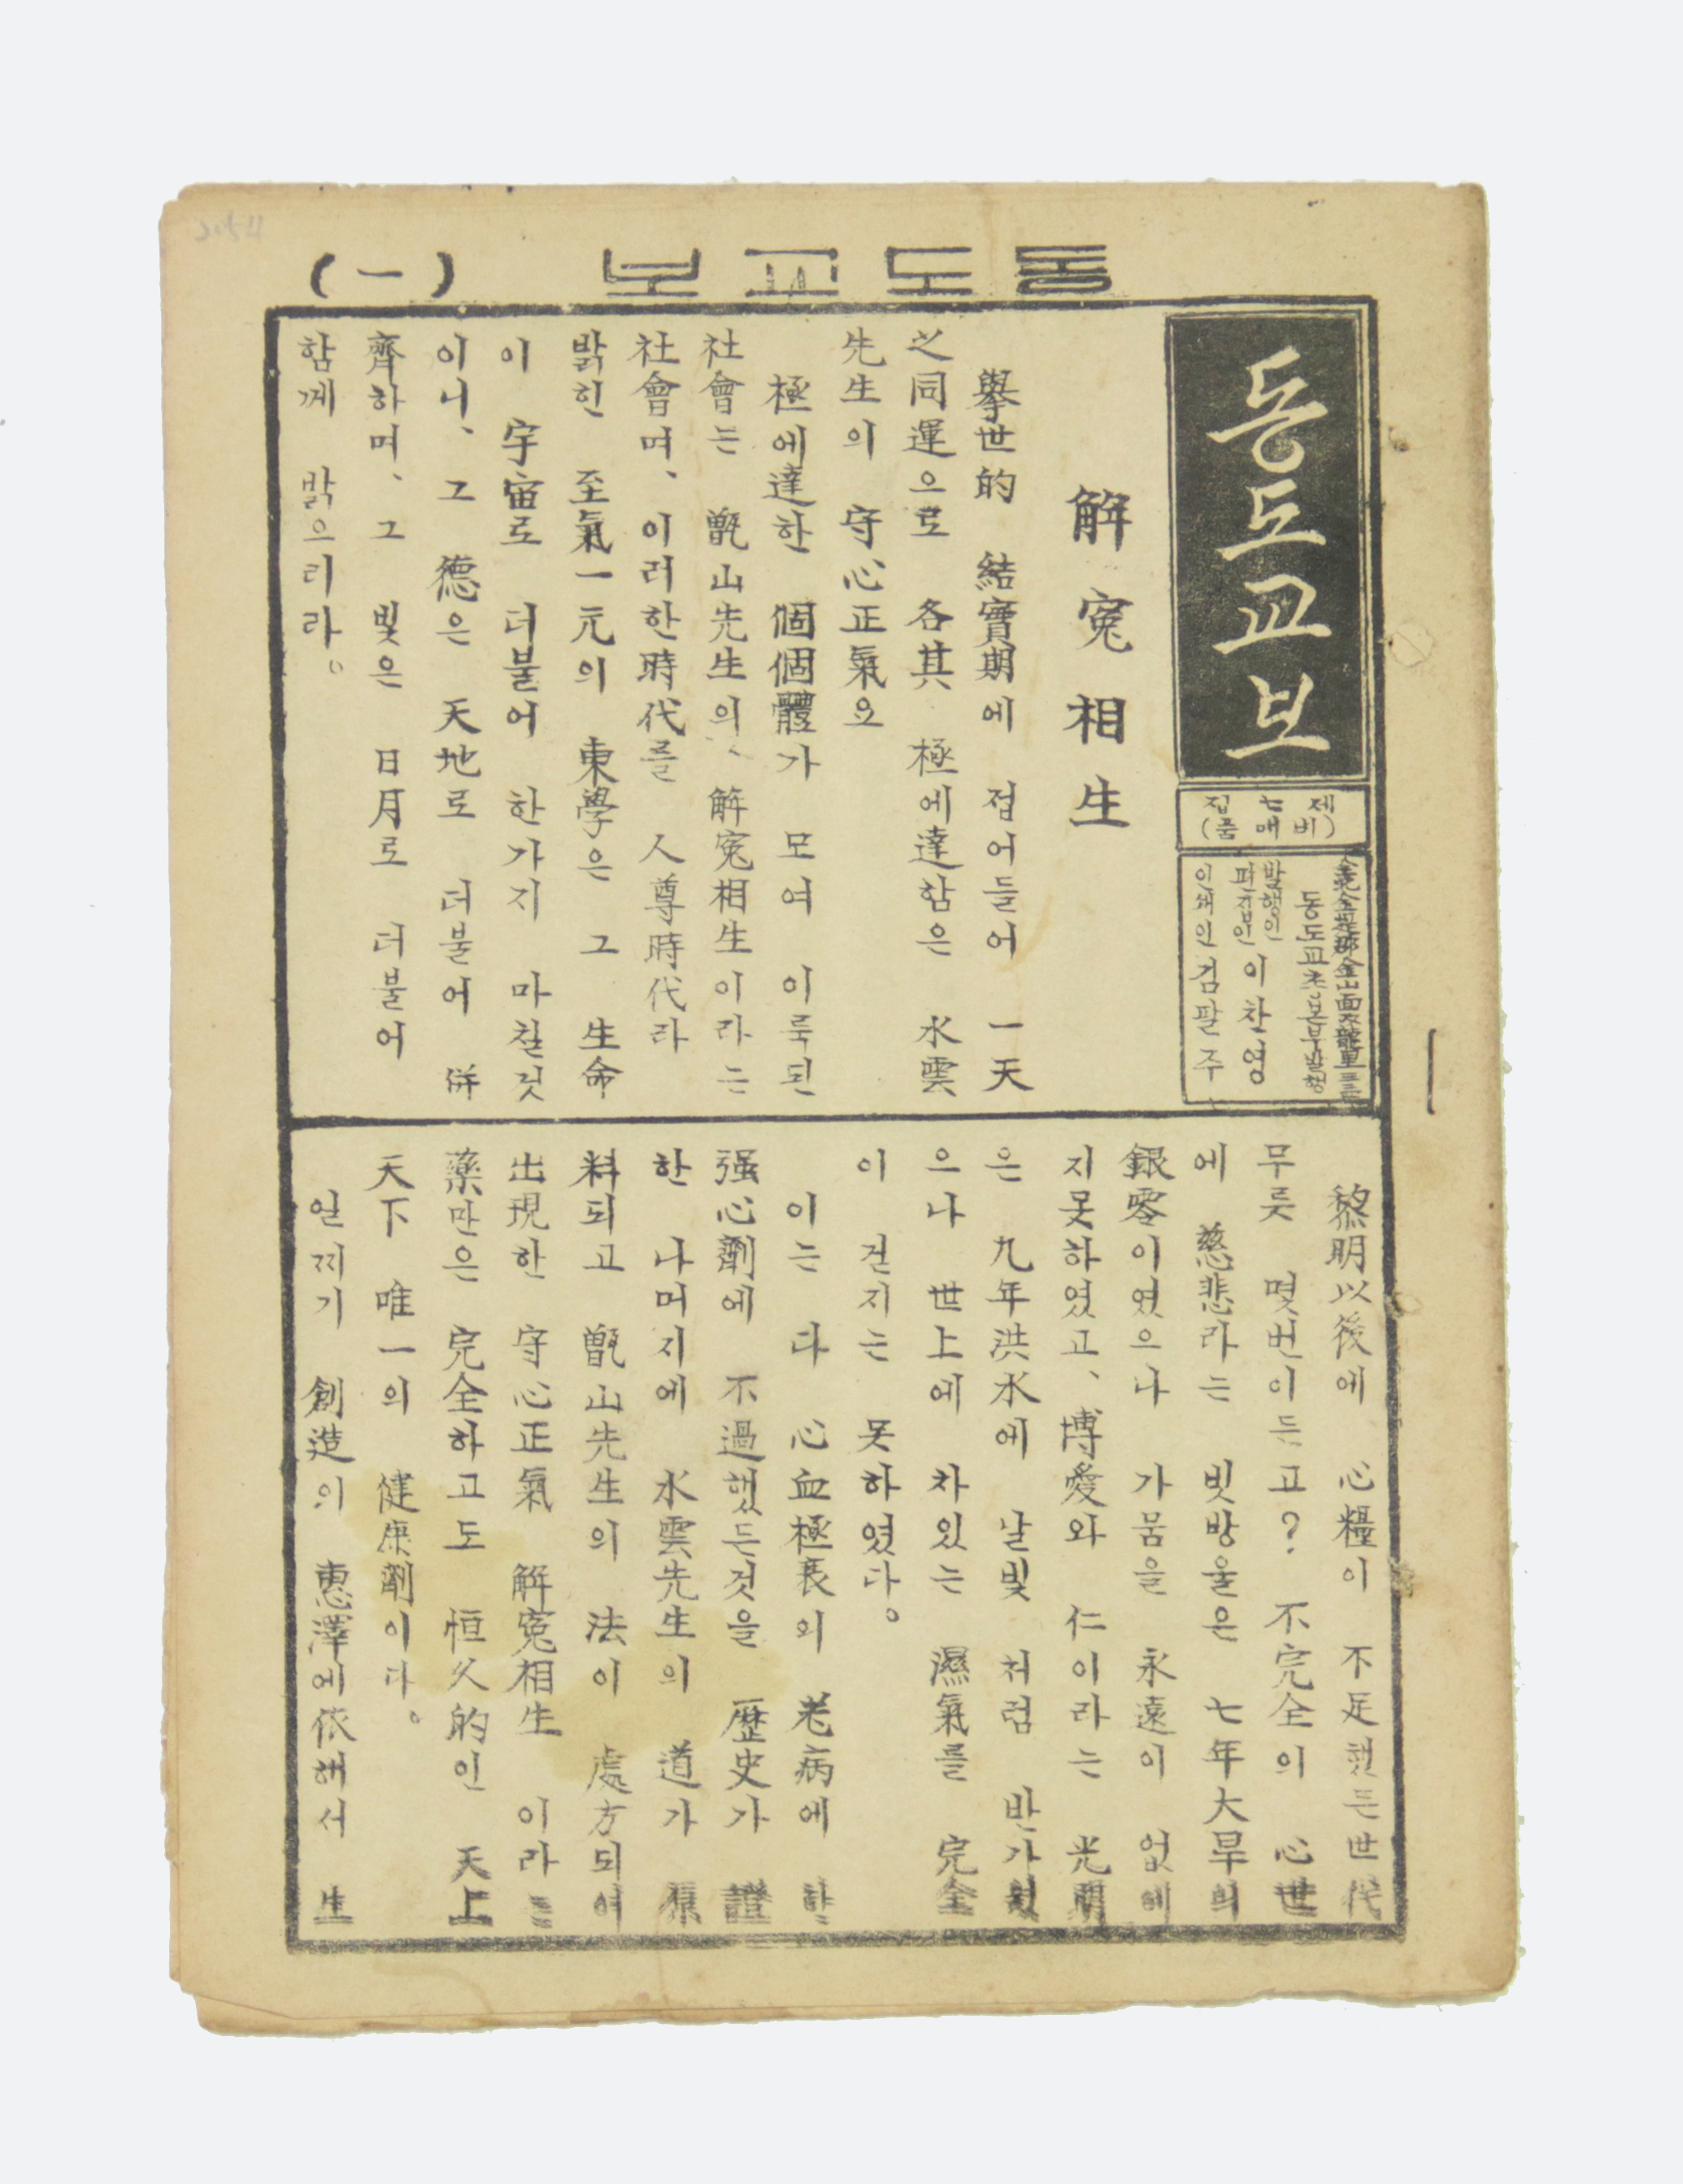 동도교보
(一)
동도교보
제七집
(비매품)
동도교 본부발행
발행인
편집인 이찬영
인쇄인 김팔주
解寃相生
擧世的 結實期에 접어들어 一天
之同運으로 各其 極에達함은 水雲
先生의 守心正氣요
極에達한 個個體가 모여 이룩된
社會는 甑山先生의、解寃相生이라는
社會며、이러한時代를 人尊時代라
밝힌 至氣一元의 東學은 그 生命
이 宇宙로 더불어 한가지 마칠것
이니、그 德은 天地로 더불어 併
齊하며、그 빛은 日月로 더불어
함께 밝으리라。
黎明以後에 心糧이 不足했든世代
무릇 몇번이든고? 不完全의 心世
에 慈悲라는 빗방울은 七年大旱의
銀零이였으나 가뭄을 永遠이 없애
지못하였고、博愛와 仁이라는 光明
은 九年洪水에 날빛 처럼 반가웠
으나 世上에 차있는 濕氣를 完全
이 걷지는 못하였다。
이는 다 心血極衰의 老病에 한
强心劑에 不過했든것을 歷史가 證
한 나머지에 水雲先生의 道가 原
料되고 甑山先生의 法이 處方되여
出現한 守心正氣 解寃相生 이라는
藥만은 完全하고도 恒久的인 天上
天下 唯一의 健康劑이다。
일찌기 創造의 惠澤에依해서 生